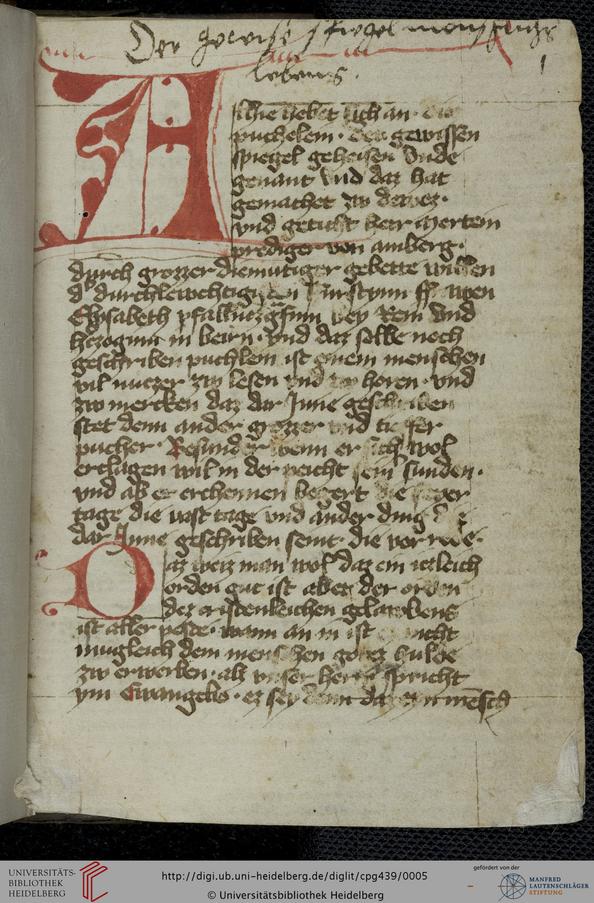 Der gewisse spiegel menschlichs
lebens.
1
Alhie hebet sich an die
puchelein. der gewissen
spiegel geheisen vnde
genant vnd daz hat
gemachet zw
vnd geticht herr mertein
prediger von amberg.
durch grozzer diemutiger gebette willen
d' durchlewchtigisten furstynn ff frawen
Elysabeth pfallnczgrefinn bey Rein vnd
herczoginn in beirn. vnd daz selbe noch
geschriben puchlein ist einem menschen
vil nuczer zw lesen vnd zw horen. vnd
zw mercken daz dar Inne geschriben
stet denn ander grozzer vnd tieffer
pucher. Besunder wenn er sich wol
erclagen wil in der peicht sein sunden.
vnd ab er erchennen begert die feyer
tage die vast tage vnd ander ding die
dar Inne geschriben seint. die vorrede.
Daz weiz man wol daz ein iczleich
orden gut ist aber der orden
dez cristenleichen gelawbens
ist aller peste. wann an in ist nicht
mugleich dem menschen gotez hulde
zw erwerben. alz vnser herre spricht
ym Ewangelio. ez sey denn daz eyn mensch
UNIVERSITÄTS-
BIBLIOTHEK
HEIDELBERG
http://digi.ub.uni-heidelberg.de/diglit/cpg439/0005
© Universitätsbibliothek Heidelberg
gefördert von der
MANFRED
LAUTENSCHLÄGER
STIFTUNG